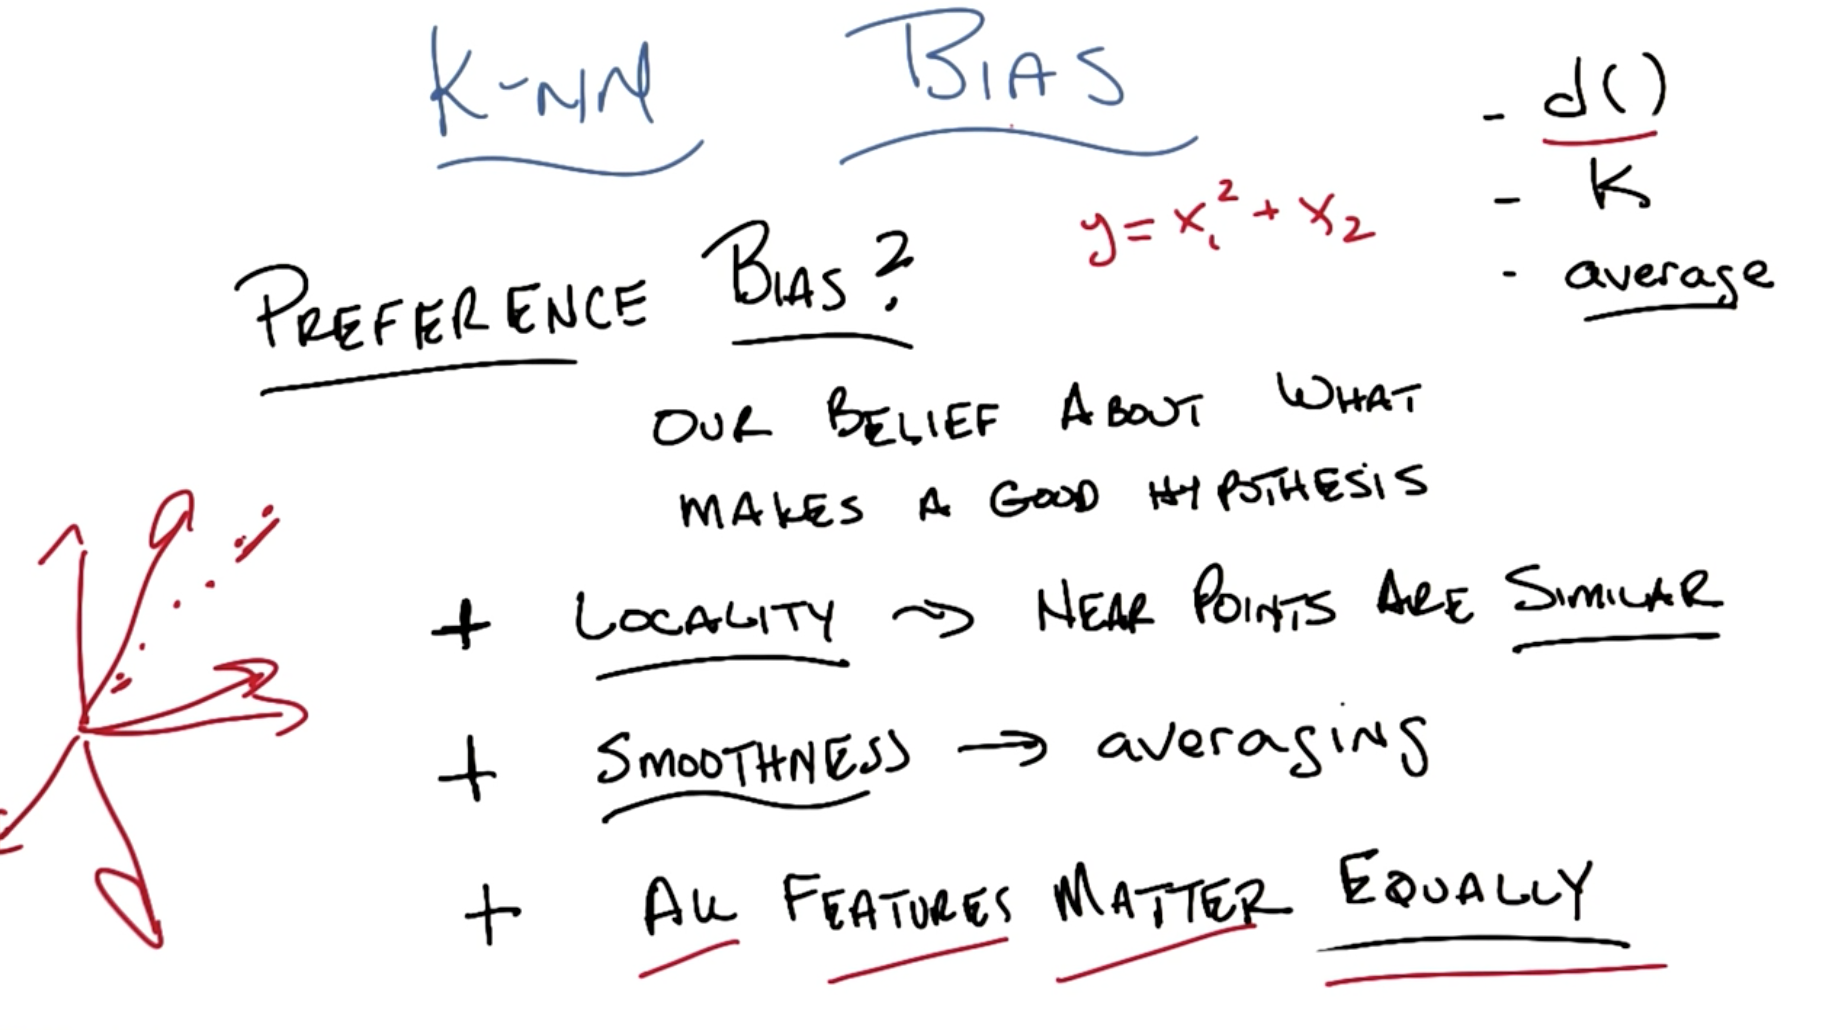 K-NN BIAS
- d()
- K
- average
y = x₁² + x₂
PREFERENCE BIAS?
OUR BELIEF ABOUT WHAT
MAKES A GOOD HYPOTHESIS
+ LOCALITY → NEAR POINTS ARE SIMILAR
+ SMOOTHNESS → averaging
+ All FEATURES MATTER EQUALLY